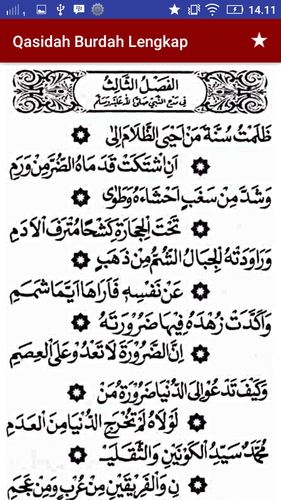 14.11
Qasidah Burdah Lengkap
الفصل الثالث
في مدح النبي صلى الله عليه وسلم
ظَلَمْتُ سُنَّةَ مَنْ أَحْيَى الظَّلَامَ إِلَى
أَنِ اشْتَكَتْ قَدَمَاهُ الضُّرَّ مِنْ وَرَمِ
وَشَدَّ مِنْ سَغَبٍ أَحْشَاءَهُ وَطَوَى
تَحْتَ الْحِجَارَةِ كَشْحًا مُتْرَفَ الْأَدَمِ
وَرَاوَدَتْهُ الْجِبَالُ الشُّمُّ مِنْ ذَهَبٍ
عَنْ نَفْسِهِ فَأَرَاهَا أَيَّمَا شَمَمِ
وَأَكَّدَتْ زُهْدَهُ فِيهَا ضَرُورَتُهُ
إِنَّ الضَّرُورَةَ لَا تَعْدُو عَلَى الْعِصَمِ
وَكَيْفَ تَدْعُو إِلَى الدُّنْيَا ضَرُورَةُ مَنْ
لَوْلَاهُ لَمْ تُخْرَجِ الدُّنْيَا مِنَ الْعَدَمِ
مُحَمَّدٌ سَيِّدُ الْكَوْنَيْنِ وَالثَّقَلَيْـ
ـنِ وَالْفَرِيقَيْنِ مِنْ عُرْبٍ وَمِنْ عَجَمِ